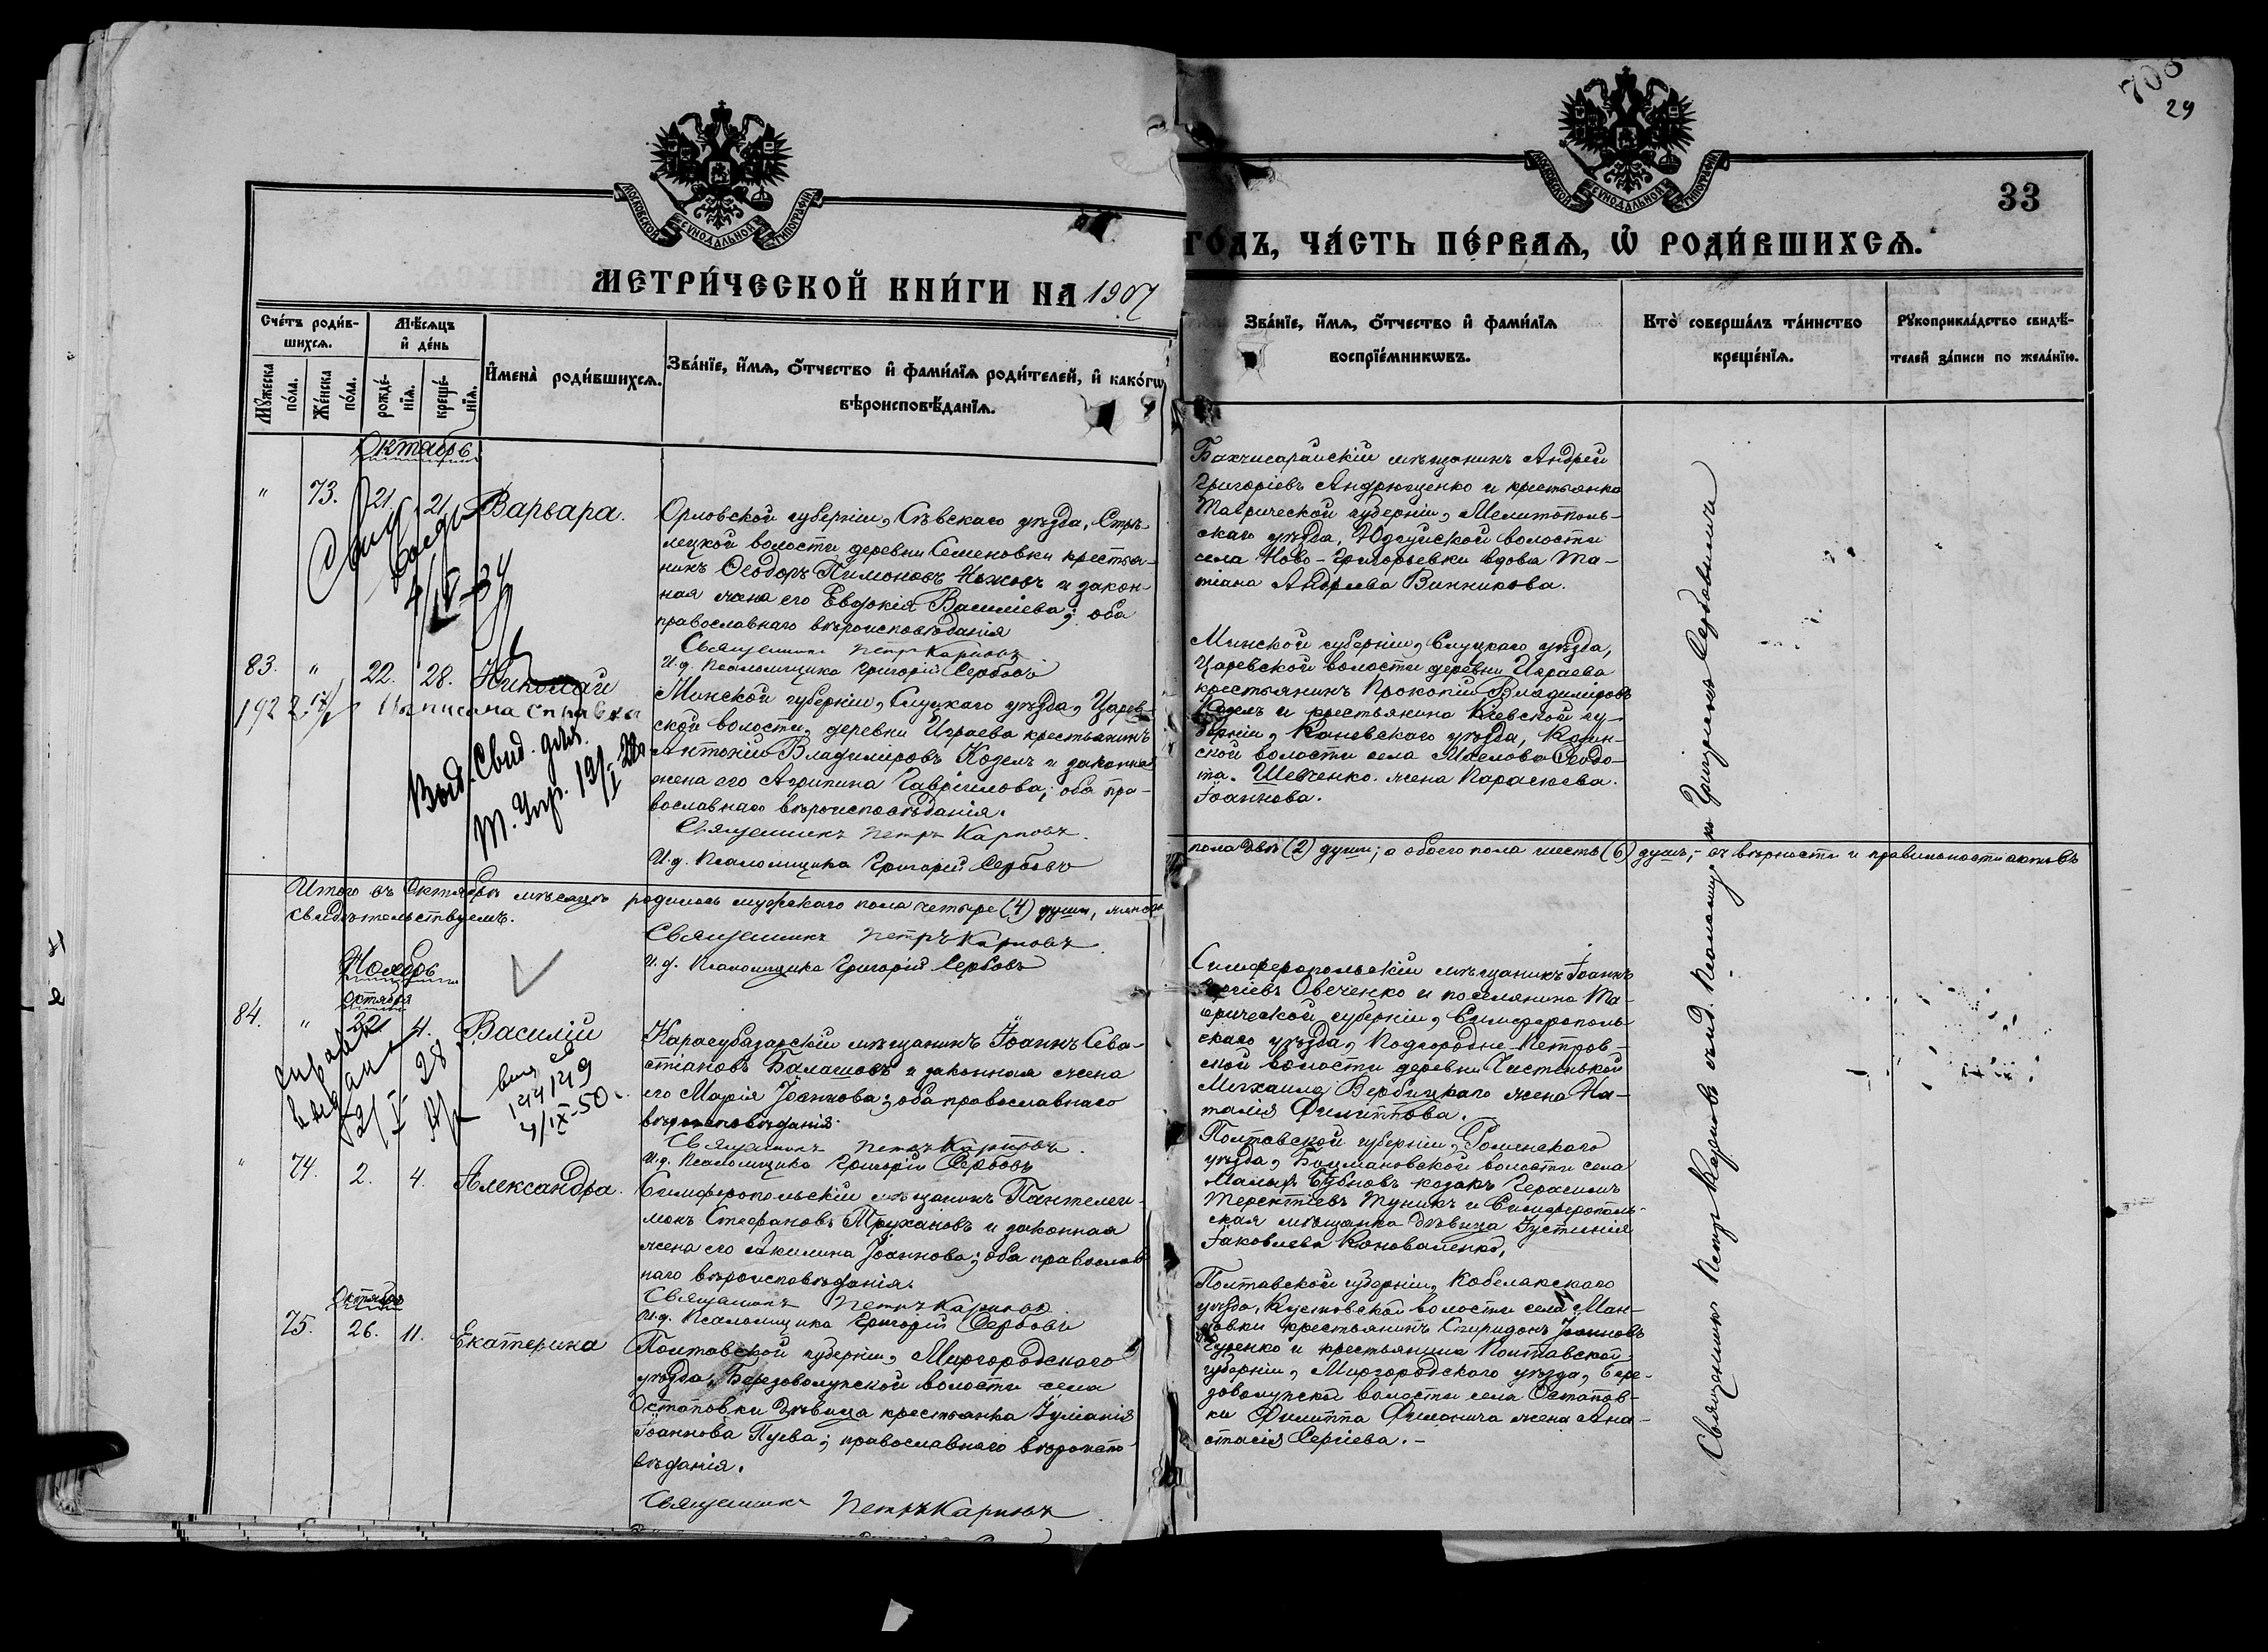 708
29
33
МОСКОВСКОЙ СѴНОДАЛЬНОЙ ТИПОГРАФІИ
МОСКОВСКОЙ СѴНОДАЛЬНОЙ ТИПОГРАФІИ
МЕТРИ́ЧЕСКОЙ КНИ́ГИ НА 1907
ГО́ДЪ, ЧА́СТЬ ПЕ́РВАѦ, Ѡ҆ РОДИ́ВШИХСѦ.
Сче́тъ роди́в-
шихсѧ.
Мꙋ́жеска по́ла.
Же́нска по́ла.
Мѣ́сѧцъ
и҆ де́нь
рожде́-
нїѧ.
креще́-
нїѧ.
И҆мена̀ роди́вшихсѧ.
Зва́нїе, и҆́мѧ, ѻ҆́тчество и҆ фами́лїѧ роди́телей, и҆ како́гѡ
вѣроисповѣ́данїѧ.
Зва́нїе, и҆́мѧ, ѻ҆́тчество и҆ фами́лїѧ
воспрїе́мникѡвъ.
Кто̀ соверша́лъ та́инство
креще́нїѧ.
Рꙋкоприкла́дство свидѣ́-
телей за́писи по жела́нїю.
Октябрь
" 73. 21. 21. Варвара.
Орловской губерніи, Сѣвскаго уѣзда, Стрѣ-
лецкой волости деревни Семеновки крестья-
нинъ Ѳеодоръ Пимоновъ и закон-
ная жена его Евдокія Василіева; оба
православнаго вѣроисповѣданія
Священникъ Петръ Карповъ
И. д. Псаломщика Григорій Сербовъ
Бахчисарайскій мѣщанинъ Андрей
Григоріевъ Андрющенко и крестьянка
Таврической губерніи, Мелитополь-
скаго уѣзда, волости
села Ново-Григорьевки вдова Та-
тіана Андреева Винникова.
83. " 22. 28. Николай
1922 Написана справка
Выд. Свид. для
Минской губерніи, Слуцкаго уѣзда, Царев-
ской волости, деревни Играева крестьянинъ
Антоній Владиміровъ Козелъ и законная
жена его Агрипина Гавріилова; оба пра-
вославнаго вѣроисповѣданія.
Священникъ Петръ Карповъ
И. д. Псаломщика Григорій Сербовъ
Минской губерніи, Слуцкаго уѣзда,
Царевской волости деревни Играева
крестьянинъ Прокопій Владиміровъ
Козелъ и крестьянина Кіевской гу-
берніи, Каневскаго уѣзда, Козин-
ской волости села Ѳеодо-
та Шевченко жена Параскева
Іоаннова.
Итого въ Октябрѣ мѣсяцѣ родилось мужскаго пола четыре (4) души, женска
пола двѣ (2) души; а обоего пола шесть (6) душъ; вѣрности и правильности актовъ
свидѣтельствуемъ.
Священникъ Петръ Карповъ
И. д. Псаломщика Григорій Сербовъ
Ноябрь
Октября
84. " 22. 4. Василій
справка
выдана
144149
4/IX-50
Карасубазарскій мѣщанинъ Іоаннъ Сева-
стіановъ Балашовъ и законная жена
его Марія Іоаннова; оба православнаго
вѣроисповѣданія
Священникъ Петръ Карповъ
И. д. Псаломщика Григорій Сербовъ
Симферопольскій мѣщанинъ Іоаннъ
Овеченко и поселянина Та-
врической губерніи, Симферополь-
скаго уѣзда, Подгородне-Петров-
ской волости деревни Чистенькой
Михаила Вербицкаго жена На-
талія Филиппова.
" 74. 2. 4. Александра.
Симферопольскій мѣщанинъ Пантелей-
монъ Стефановъ Трухановъ и законная
жена его Акилина Іоаннова; оба православ
наго вѣроисповѣданія.
Священникъ Петръ Карповъ
И. д. Псаломщика Григорій Сербовъ
Полтавской губерніи, Роменскаго
уѣзда, волости села
Малыхъ Бубновъ козакъ Герасимъ
Терентіевъ и Симферополь-
ская мѣщанка дѣвица Іустинія
Іаковлева Коноваленко.
Октября
75. 26. 11. Екатерина
Полтавской губерніи, Миргородскаго
уѣзда, Березоволупской волости села
Остаповки дѣвица крестьянка Іуліанія
Іоаннова; православнаго вѣроиспо-
вѣданія.
Священникъ Петръ Карповъ
Полтавской губерніи, Кобелякскаго
уѣзда, волости села
крестьянинъ Спиридонъ Іоанновъ
и крестьянина Полтавской
губерніи, Миргородскаго уѣзда, Бере-
зоволупской волости села Остапов-
ки Филиппа жена Ана-
стасія Сергіева.-
Священникъ Петръ Карповъ